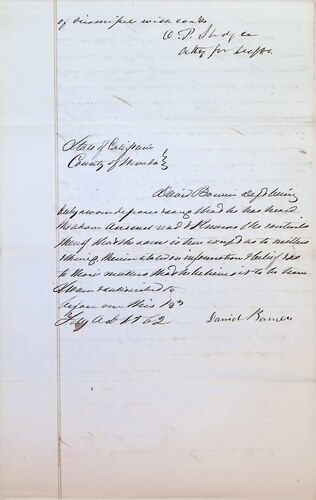 of dismissal with costs
O. P. S
Atty for Deft
State of California }
County of Nevada }
David Bowen Deft being
duly sworn deposes & says that he has heard
the above Answer read & Knows the contents
thereof that the same is true except as to matters
therein stated on information & belief & as
to those matters that he believes it to be true
Sworn & subscribed to
before me this
July A D 1862
David Bowen